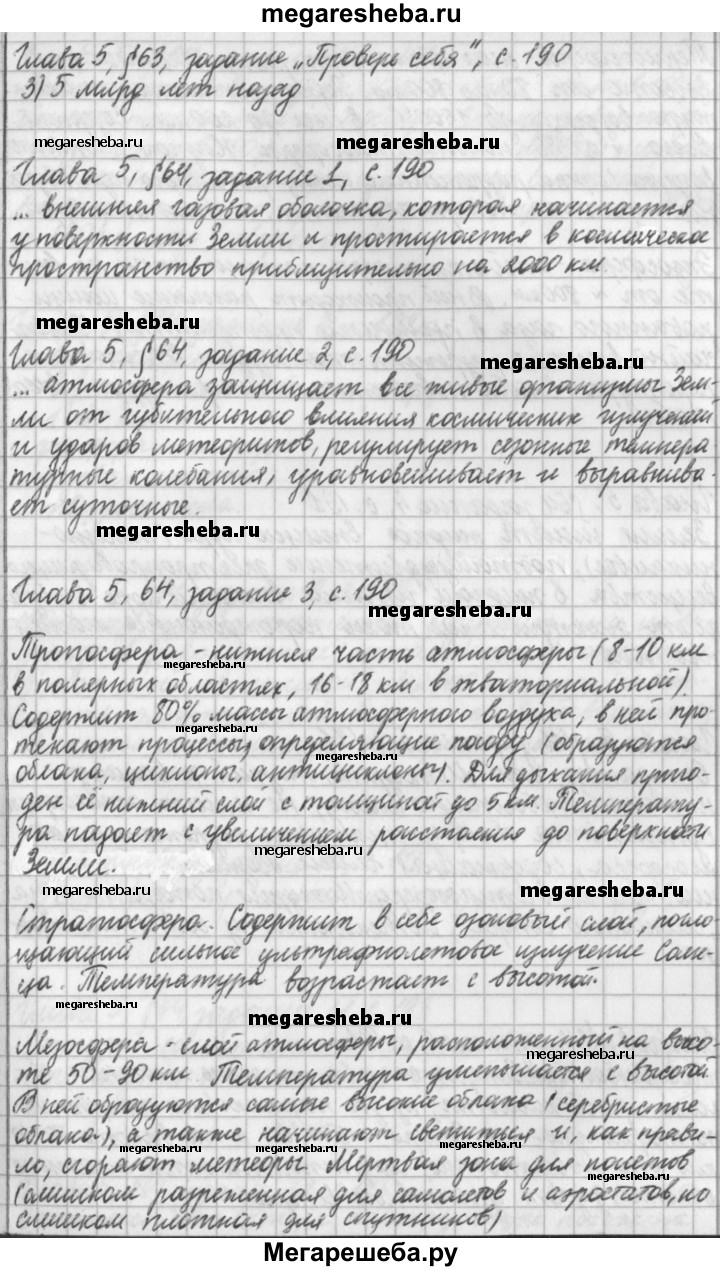 megaresheba.ru
Глава 5, §63, задание „Проверь себя", с. 190
3) 5 млрд лет назад
megaresheba.ru
megaresheba.ru
Глава 5, §64, задание 1, с. 190
... внешняя газовая оболочка, которая начинается
у поверхности Земли и простирается в космическое
пространство приблизительно на 2000 км.
megaresheba.ru
Глава 5, §64, задание 2, с. 190
megaresheba.ru
... атмосфера защищает все живые организмы Зем-
ли от губительного влияния космических излучений
и ударов метеоритов, регулирует сезонные темпера
турные колебания, уравновешивает и выравнива-
ет суточные.
megaresheba.ru
Глава 5, 64, задание 3, с. 190
megaresheba.ru
Тропосфера - нижняя часть атмосферы (8-10 км
megaresheba.ru
в полярных областях, 16-18 км в экваториальной).
Содержит 80% массы атмосферного воздуха, в ней про-
megaresheba.ru
текают процессы, определяющие погоду (образуются
облака, циклоны, антициклоны). Для дыхания приго-
ден её нижний слой с толщиной до 5 км. Температу-
ра падает с увеличением расстояния до поверхности
megaresheba.ru
Земли.
megaresheba.ru
megaresheba.ru
Стратосфера. Содержит в себе озоновый слой, погло-
щающий сильное ультрафиолетовое излучение Солн-
ца. Температура возрастает с высотой.
megaresheba.ru
megaresheba.ru
Мезосфера - слой атмосферы, расположенный на высо-
megaresheba.ru
те 50-90 км. Температура уменьшается с высотой.
В ней образуются самые высокие облака (серебристые
облака), а также начинают светиться и, как прави-
megaresheba.ru
megaresheba.ru
ло, сгорают метеоры. Мертвая зона для полетов
(слишком разреженная для самолетов и аэростатов, но
слишком плотная для спутников)
Мегарешеба.ру